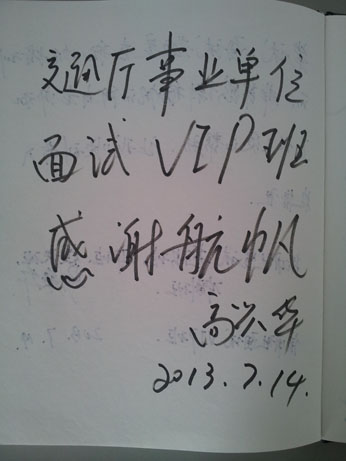 交通厅事业单位
面试VIP班
感谢航帆
高兴华
2013.7.14.